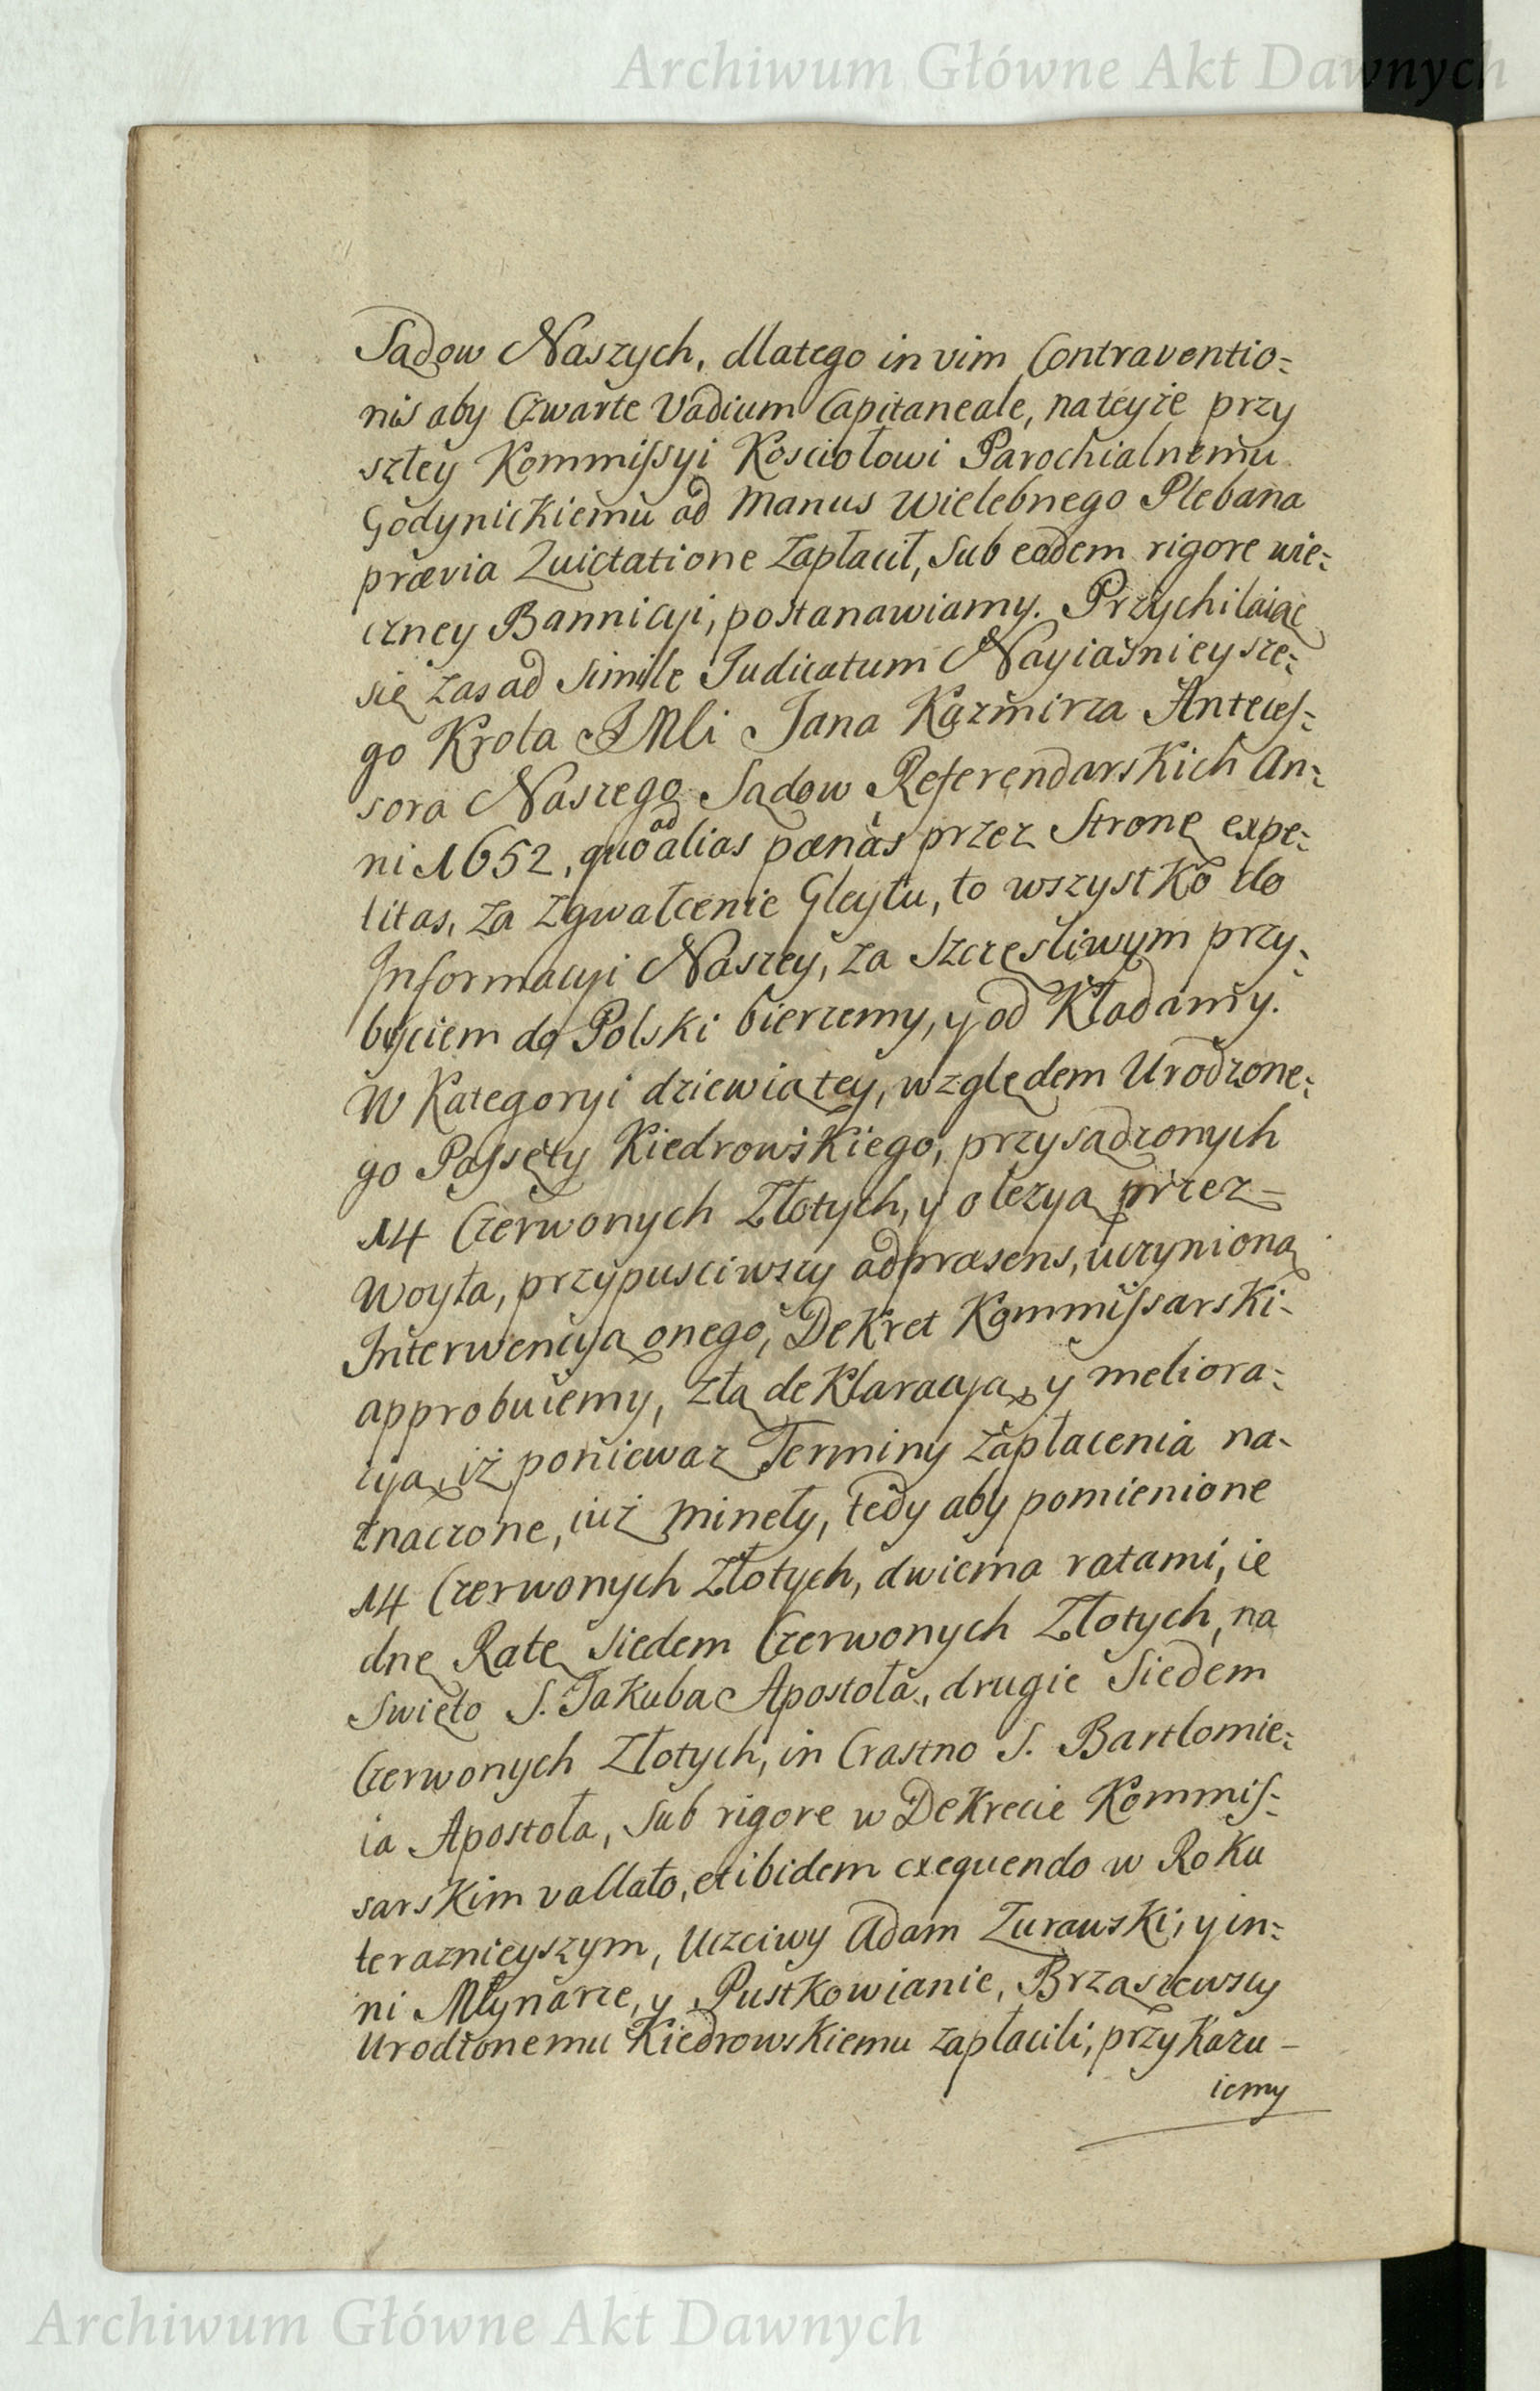 Archiwum Główne Akt Dawnych
Sądow Naszych, dlatego in vim Contraventio=
nis aby Czwarte Vadium Capitaneale, na teyże przy
szłey Kommissyi Kosciołowi Parochialnemu
Godynickiemu ad Manus Wielebnego Plebana
prævia Quictatione zapłacił, sub eodem rigore wie=
czney Bannicyi, postanawiamy. Przychilaiąc
się zas ad simile Judicatum Nayiaśnieysze=
go Krola JMCi Jana Kazmirza Anteces=
sora Naszego Sądow Referendarskich An=
ni 1652, quo ad alias pœnas przez Stronę expe=
titas, za zgwałcenie Gleytu, to wszystko do
Informacyi Naszey, za szczęsliwym przy=
byciem do Polski bierzemy, y od Kładamy.
W Kategoryi dziewiątey, względem Urodzone=
go Possęty Kiedrowskiego, przysądzonych
14 Czerwonych Złotych, y o lezyą przez=
Woyta, przypusciwszy ad præsens, uczynioną
Interwencyą onego, Dekret Kommissarski-
approbuiemy, z tą deklaracyą, y meliora=
cyą, iż poniewaz Terminy zapłacenia na-
znaczone, iuż mineły, tedy aby pomienione
14 Czerwonych Złotych, dwiema ratami, ie
dnę Ratę siedem Czerwonych Złotych, na
Swięto S. Jakuba Apostoła, drugie Siedem
Czerwonych Złotych, in Crastno S. Bartłomie=
ia Apostoła, sub rigore w Dekrecie Kommis=
sarskim vallato, et ibidem exequendo w Roku
teraznieyszym, Uczciwy Adam Zurawski, y in=
ni Młynarze, y Pustkowianie, Brząszewscy
Urodzonemu Kiedrowskiemu zapłacili, przykazu-
iemy
Archiwum Główne Akt Dawnych